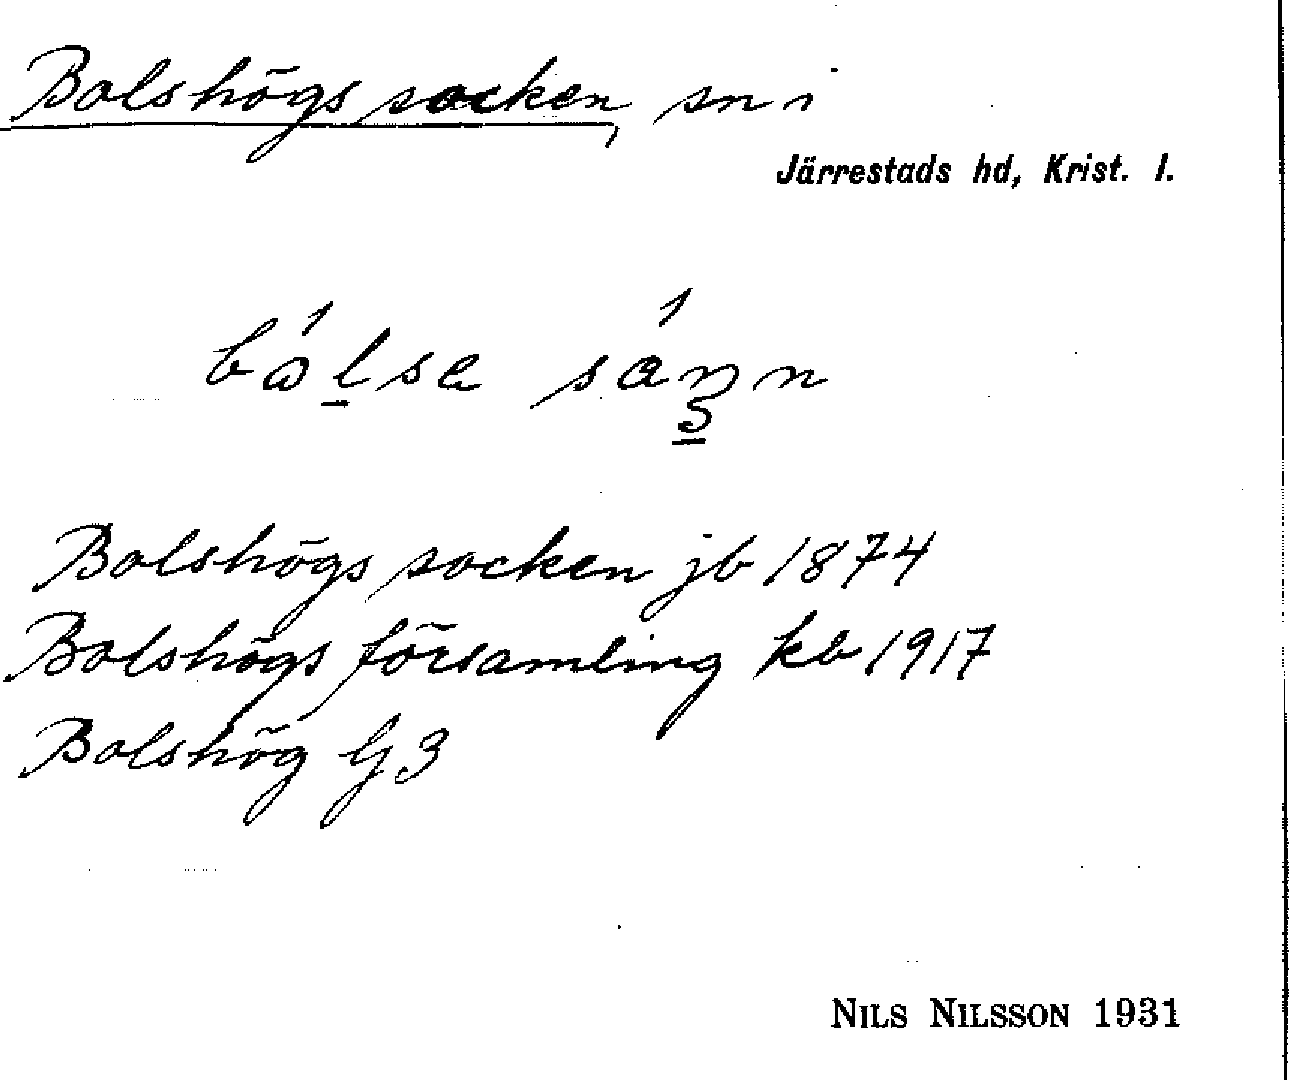 Bolshögs socken, sn i
Järrestads hd, Krist. l.
Bolshögs socken jb 1874
Bolshögs församling kb 1917
Bolshög G 3
NILS NILSSON 1931